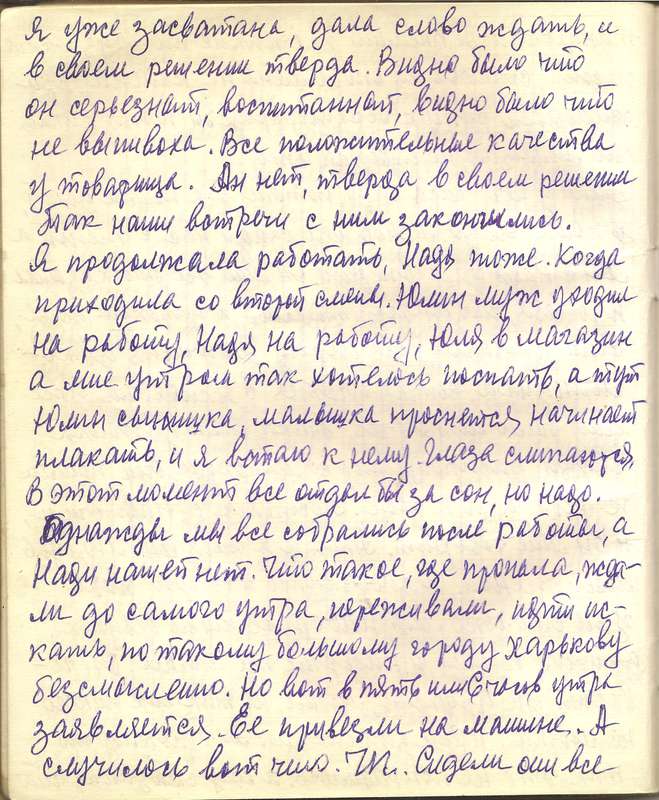 Я уже засватана, дала слово ждать, и
в своем решении тверда. Видно было что
он серьезнат, воспитаннат, видно было что
не выпивоха. Все положительные качества
у товарища. Ан нет, тверда в своем решении
Так наши встречи с ним закончились.
Я продолжала работать, Надя тоже. Когда
приходила со второй смены. Юлин муж уходил
на работу, Надя на работу, Юля в магазин
а мне утром так хотелось поспать, а тут
Юлин сынишка, малышка проснется, начинает
плакать, и я встаю к нему. Глаза слипаются,
В этот момент все отдал бы за сон, но надо.
Однажды мы все собрались после работы, а
Нади нашей нет. Что такое, где пропала, жда-
ли до самого утра, переживали, идти ис-
кать, по такому большому городу Харькову
безсмысленно. Но вот в пять или 6 часов утра
заявляется. Ее привезли на машине. А
случилось вот что. Сидели они все